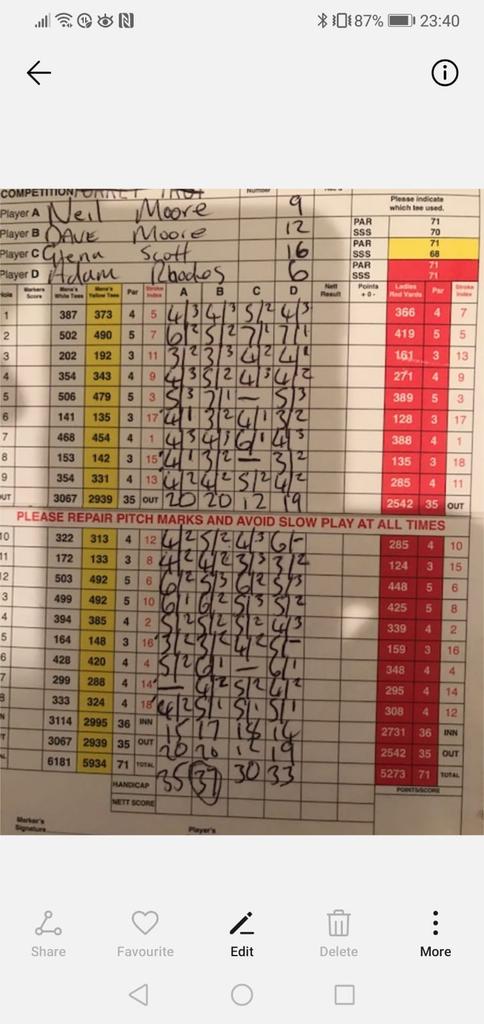 87% 23:40
COMPETITION
Please indicate which tee used.
Player A Neil Moore 9
Player B DAVE Moore 12
Player C Glenn Scott 16
Player D Adam Rhodes 6
PAR 71
SSS 70
PAR 71
SSS 68
PAR 71
SSS 71
Hole Markers Score Mens's White Tees Mens's Yellow Tees Par Stroke Index A B C D Nett Result Points + 0 - Ladies Red Yards Par Stroke Index
1 387 373 4 5 4/3 4/3 5/2 4/3 366 4 7
2 502 490 5 7 6/2 5/2 7/1 7/1 419 5 5
3 202 192 3 11 3/2 3/3 4/2 4/1 161 3 13
4 354 343 4 9 4/3 5/2 4/3 4/2 271 4 9
5 506 479 5 3 5/3 7/1 — 5/3 389 5 3
6 141 135 3 17 4/1 3/2 4/1 3/2 128 3 17
7 468 454 4 1 4/3 4/3 6/1 4/3 388 4 1
8 153 142 3 15 4/1 3/2 — 3/2 135 3 18
9 354 331 4 13 4/2 4/2 5/2 4/2 285 4 11
OUT 3067 2939 35 OUT 20 20 12 19 2542 35 OUT
PLEASE REPAIR PITCH MARKS AND AVOID SLOW PLAY AT ALL TIMES
10 322 313 4 12 4/2 5/2 4/3 6/- 285 4 10
11 172 133 3 8 4/2 4/2 3/3 3/2 124 3 15
12 503 492 5 6 6/2 5/3 6/2 5/3 448 5 6
3 499 492 5 10 6/1 6/2 5/3 5/2 425 5 8
4 394 385 4 2 5/2 5/2 5/2 4/3 339 4 2
5 164 148 3 16 3/2 3/2 4/2 5/- 159 3 16
6 428 420 4 4 5/2 6/1 — 6/1 348 4 4
7 299 288 4 14 — 4/2 5/2 4/2 295 4 14
8 333 324 4 18 4/2 5/1 5/1 5/1 308 4 12
N 3114 2995 36 INN 15 17 18 14 2731 36 INN
T 3067 2939 35 OUT 20 20 12 19 2542 35 OUT
6181 5934 71 TOTAL 35 37 30 33 5273 71 TOTAL
HANDICAP POINTS/SCORE
NETT SCORE
Marker's Signature Player's
Share Favourite Edit Delete More